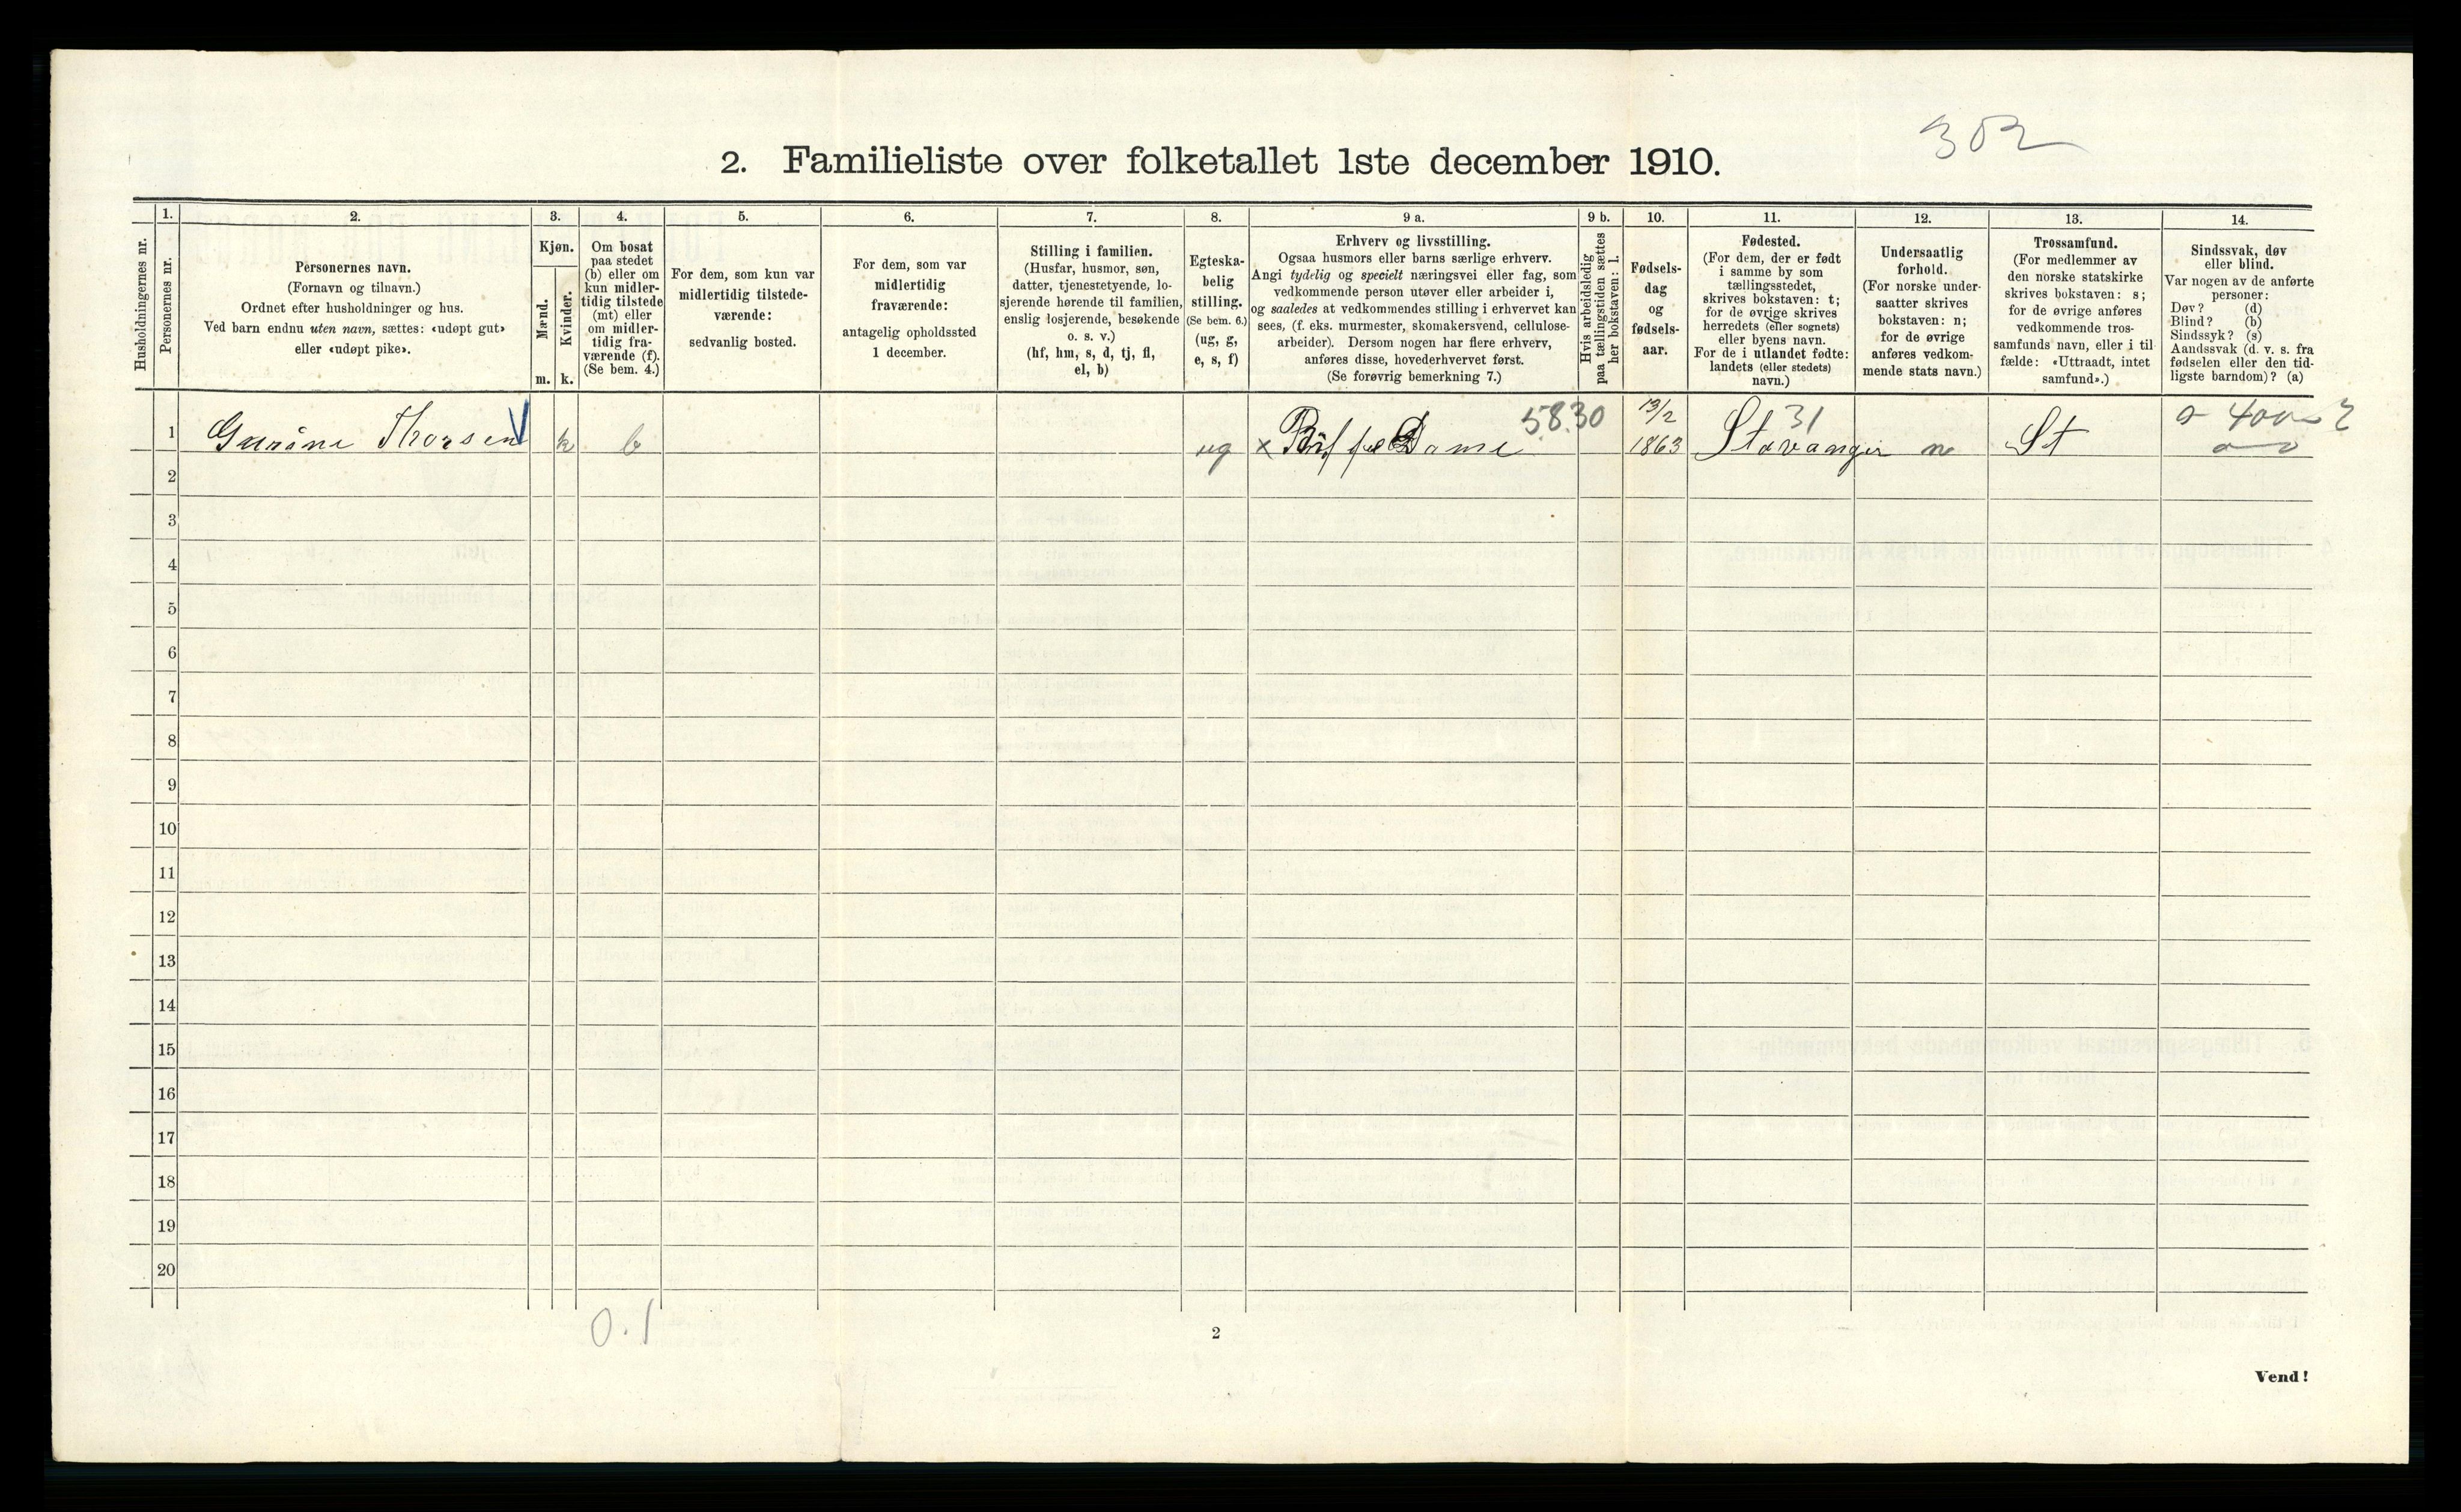 302
2. Familieliste over folketallet 1ste december 1910.
Husholdningernes nr.
1.
Personernes nr.
2.
Personernes navn.
(Fornavn og tilnavn.)
Ordnet efter husholdninger og hus.
Ved barn endnu uten navn, sættes: «udøpt gut»
eller «udøpt pike».
3.
Kjøn.
Mænd.
Kvinder.
m. k.
4.
Om bosat
paa stedet
(b) eller om
kun midler-
tidig tilstede
(mt) eller
om midler-
tidig fra-
værende (f).
(Se bem. 4.)
5.
For dem, som kun var
midlertidig tilstede-
værende:
sedvanlig bosted.
6.
For dem, som var
midlertidig
fraværende:
antagelig opholdssted
1 december.
7.
Stilling i familien.
(Husfar, husmor, søn,
datter, tjenestetyende, lo-
sjerende hørende til familien,
enslig losjerende, besøkende
o. s. v.)
(hf, hm, s, d, tj, fl,
el, b)
8.
Egteska-
belig
stilling.
(Se bem. 6.)
(ug, g,
e, s, f)
9 a.
Erhverv og livsstilling.
Ogsaa husmors eller barns særlige erhverv.
Angi tydelig og specielt næringsvei eller fag, som
vedkommende person utøver eller arbeider i,
og saaledes at vedkommendes stilling i erhvervet kan
sees, (f. eks. murmester, skomakersvend, cellulose-
arbeider). Dersom nogen har flere erhverv,
anføres disse, hovederhvervet først.
(Se forøvrig bemerkning 7.)
9 b.
Hvis arbeidsledig
paa tællingstiden sættes
her bokstaven: l.
10.
Fødsels-
dag
og
fødsels-
aar.
11.
Fødested.
(For dem, der er født
i samme by som
tællingsstedet,
skrives bokstaven: t;
for de øvrige skrives
herredets (eller sognets)
eller byens navn.
For de i utlandet fødte:
landets (eller stedets)
navn.)
12.
Undersaatlig
forhold.
(For norske under-
saatter skrives
bokstaven: n;
for de øvrige
anføres vedkom-
mende stats navn.)
13.
Trossamfund.
(For medlemmer av
den norske statskirke
skrives bokstaven: s;
for de øvrige anføres
vedkommende tros-
samfunds navn, eller i til-
fælde: «Uttraadt, intet
samfund».)
14.
Sindssvak, døv
eller blind.
Var nogen av de anførte
personer:
Døv? (d)
Blind? (b)
Sindssyk? (s)
Aandssvak (d. v. s. fra
fødselen eller den tid-
ligste barndom)? (a)
58.30 13/2 31
1 Thorsen k b ug x Dame 1863 Stavanger n St
2
3
4
5
6
7
8
9
10
11
12
13
14
15
16
17
18
19
20
0.1
2
Vend!